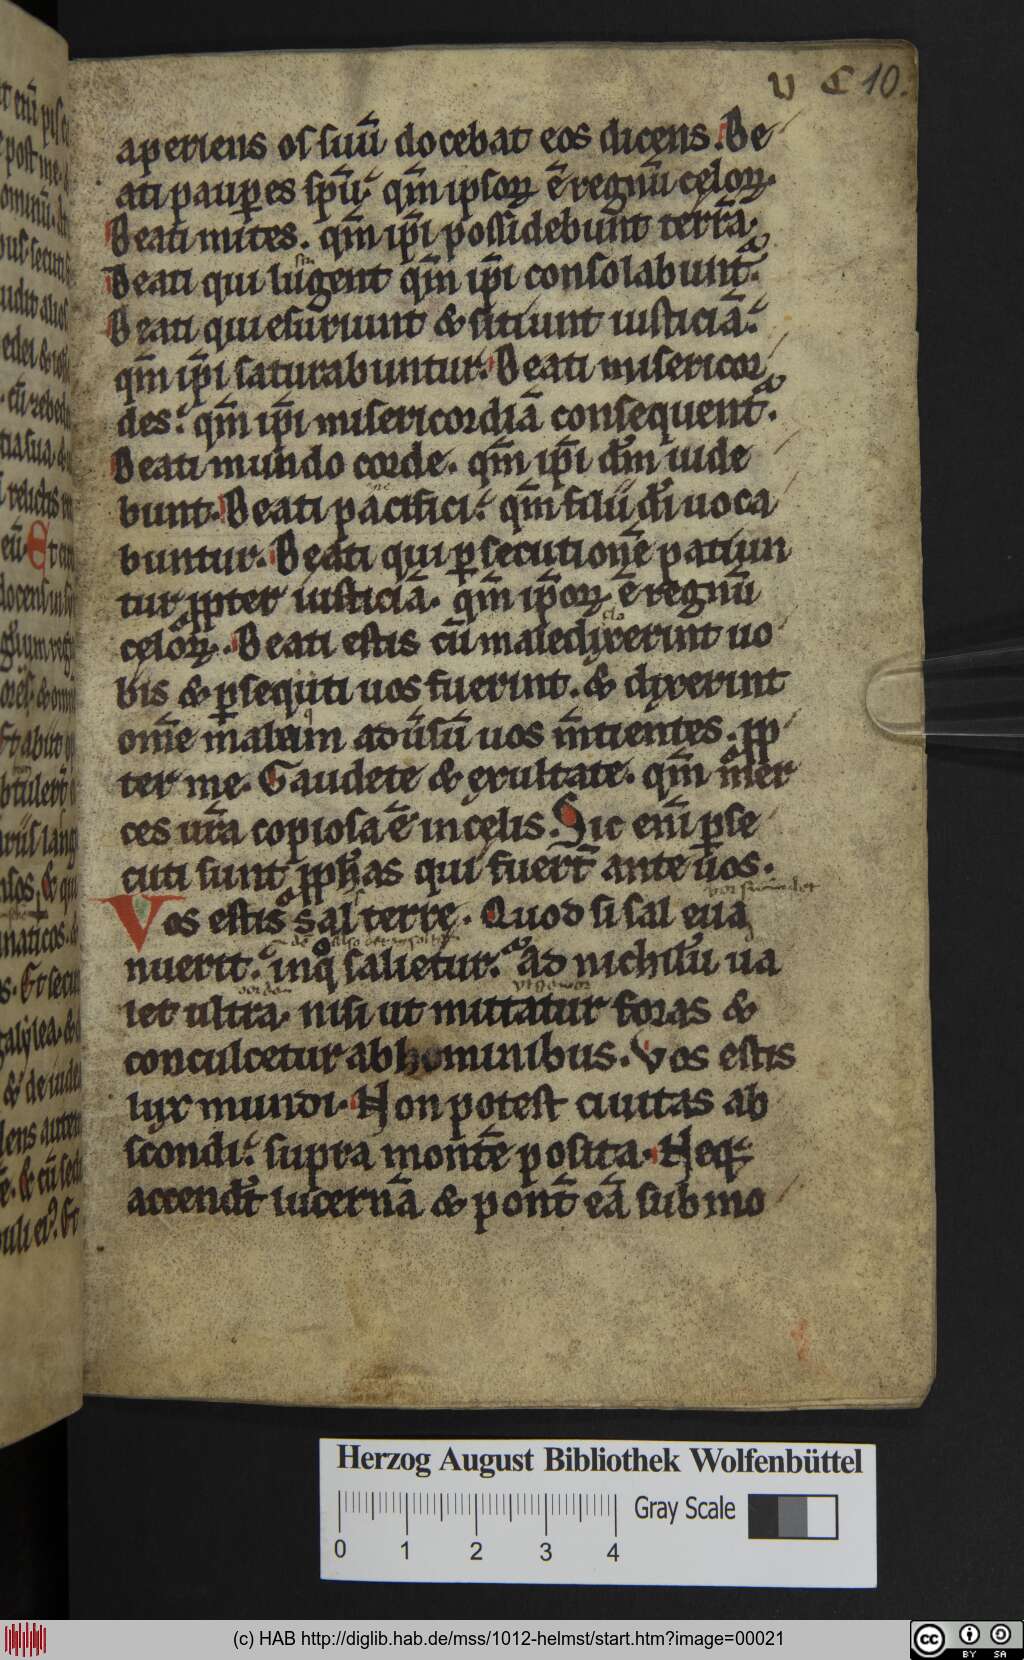 V C 10.
aperiens os suū docebat eos dicens. Be
ati paup̄es sp̄u. qm̄ ipsoꝝ ē regnū cęloꝝ.
Beati mites. qm̄ ip̄i possidebunt terrā.
Beati qui lugent qm̄ ip̄i consolabunt᷑.
Beati qui esuriunt & sitiunt iusticiā.
qm̄ ip̄i saturabuntur. Beati misericor
des. qm̄ ip̄i misericordiā consequent᷑.
Beati mundo corde. qm̄ ip̄i dm̄ uide
bunt. Beati pacifici. qm̄ filii di uoca
buntur. Beati qui ꝑsecutionē patiun
tur ꝓpter iusticiā. qm̄ ip̄oꝝ ē regnū
cęloꝝ. Beati estis cū maledixerint uo
bis & ꝑsequuti uos fuerint. & dyxerint
om̄e malum adūsū uos m̄tientes. ꝓp
ter me. Gaudete & exultate. qm̄ mer
ces ur̄a copiosa ē in cęlis. Sic enī ꝑse
cuti sunt ꝓph̄as qui fuert̄ ante uos.
Vos estis sal terrę. Quod si sal eua
nuerit. inq̊ salietur. ad nichilū ua
let ultra. nisi ut mittatur foras &
conculcetur ab hominibus. Vos estis
lux mundi. Non potest ciuitas ab
scondi. supra montē posita. Neq;
accendt̄ lucernā & pont̄ eā sub mo
Herzog August Bibliothek Wolfenbüttel
0 1 2 3 4
Gray Scale
(c) HAB http://diglib.hab.de/mss/1012-helmst/start.htm?image=00021
cc BY SA